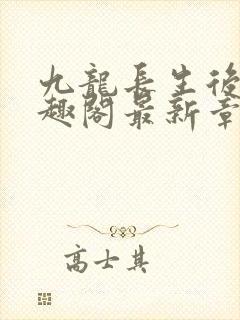 九龍長生後
趣閣最新章
高士其